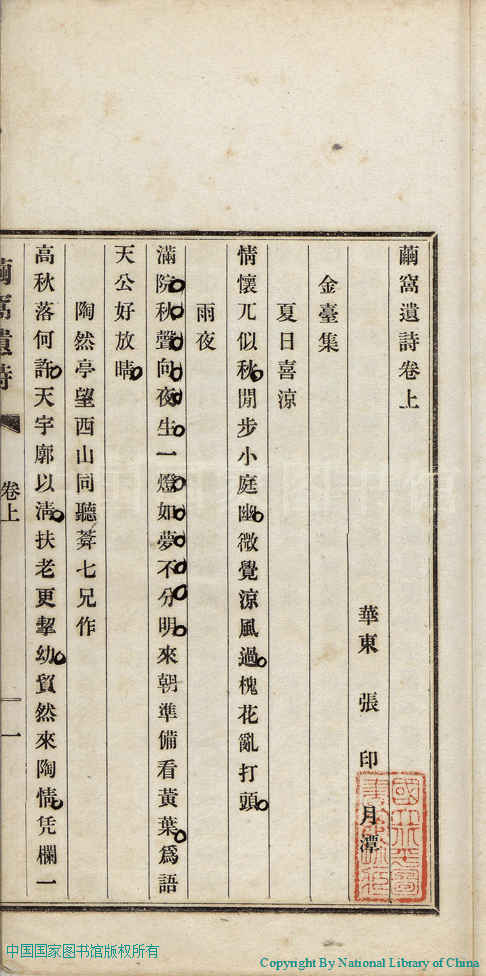 繭窩遺詩卷上
華東 張 印 月潭
金臺集
夏日喜涼
情懷兀似秋閒步小庭幽微覺涼風過槐花亂打頭
雨夜
滿院秋聲向夜生一燈如夢不分明來朝準備看黃葉爲語
天公好放晴
陶然亭望西山同聽莾七兄作
高秋落何許天宇廓以淸扶老更挈幼貿然來陶情凭欄一
繭窩遺詩 卷上 一
中国国家图书馆版权所有
Copyright By National Library of China